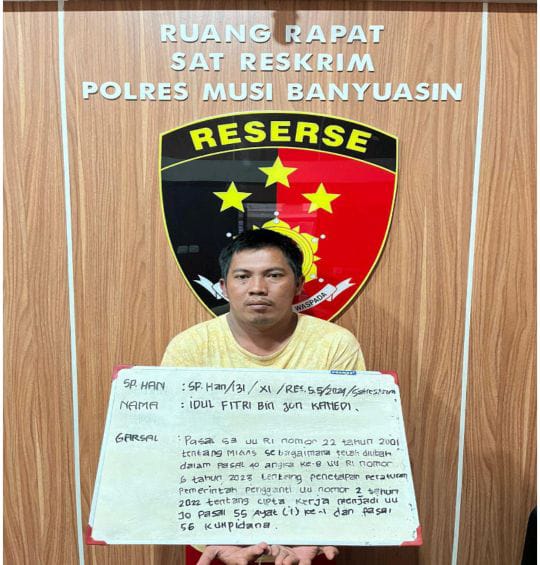 RUANG RAPAT
SAT RESKRIM
POLRES MUSI BANYUASIN
RESERSE
WASPADA
SP. HAN : SP. Han/131/XI/RES.5.5/2024/Satreskrim
NAMA : IDUL FITRI Bin Jun KAHEDI.
GARSAL : Pasal 53 UU RI nomor 22 tahun 2001
tentang MIGAS sebagaimana telah diubah
dalam Pasal 40 angka ke-8 UU RI nomor
6 tahun 2023 tentang penetapan peraturan
Pemerintah pengganti UU nomor 2 tahun
2022 tentang cipta kerja menjadi UU
JO Pasal 55 Ayat (1) ke-1 dan pasal
56 KUHPidana.